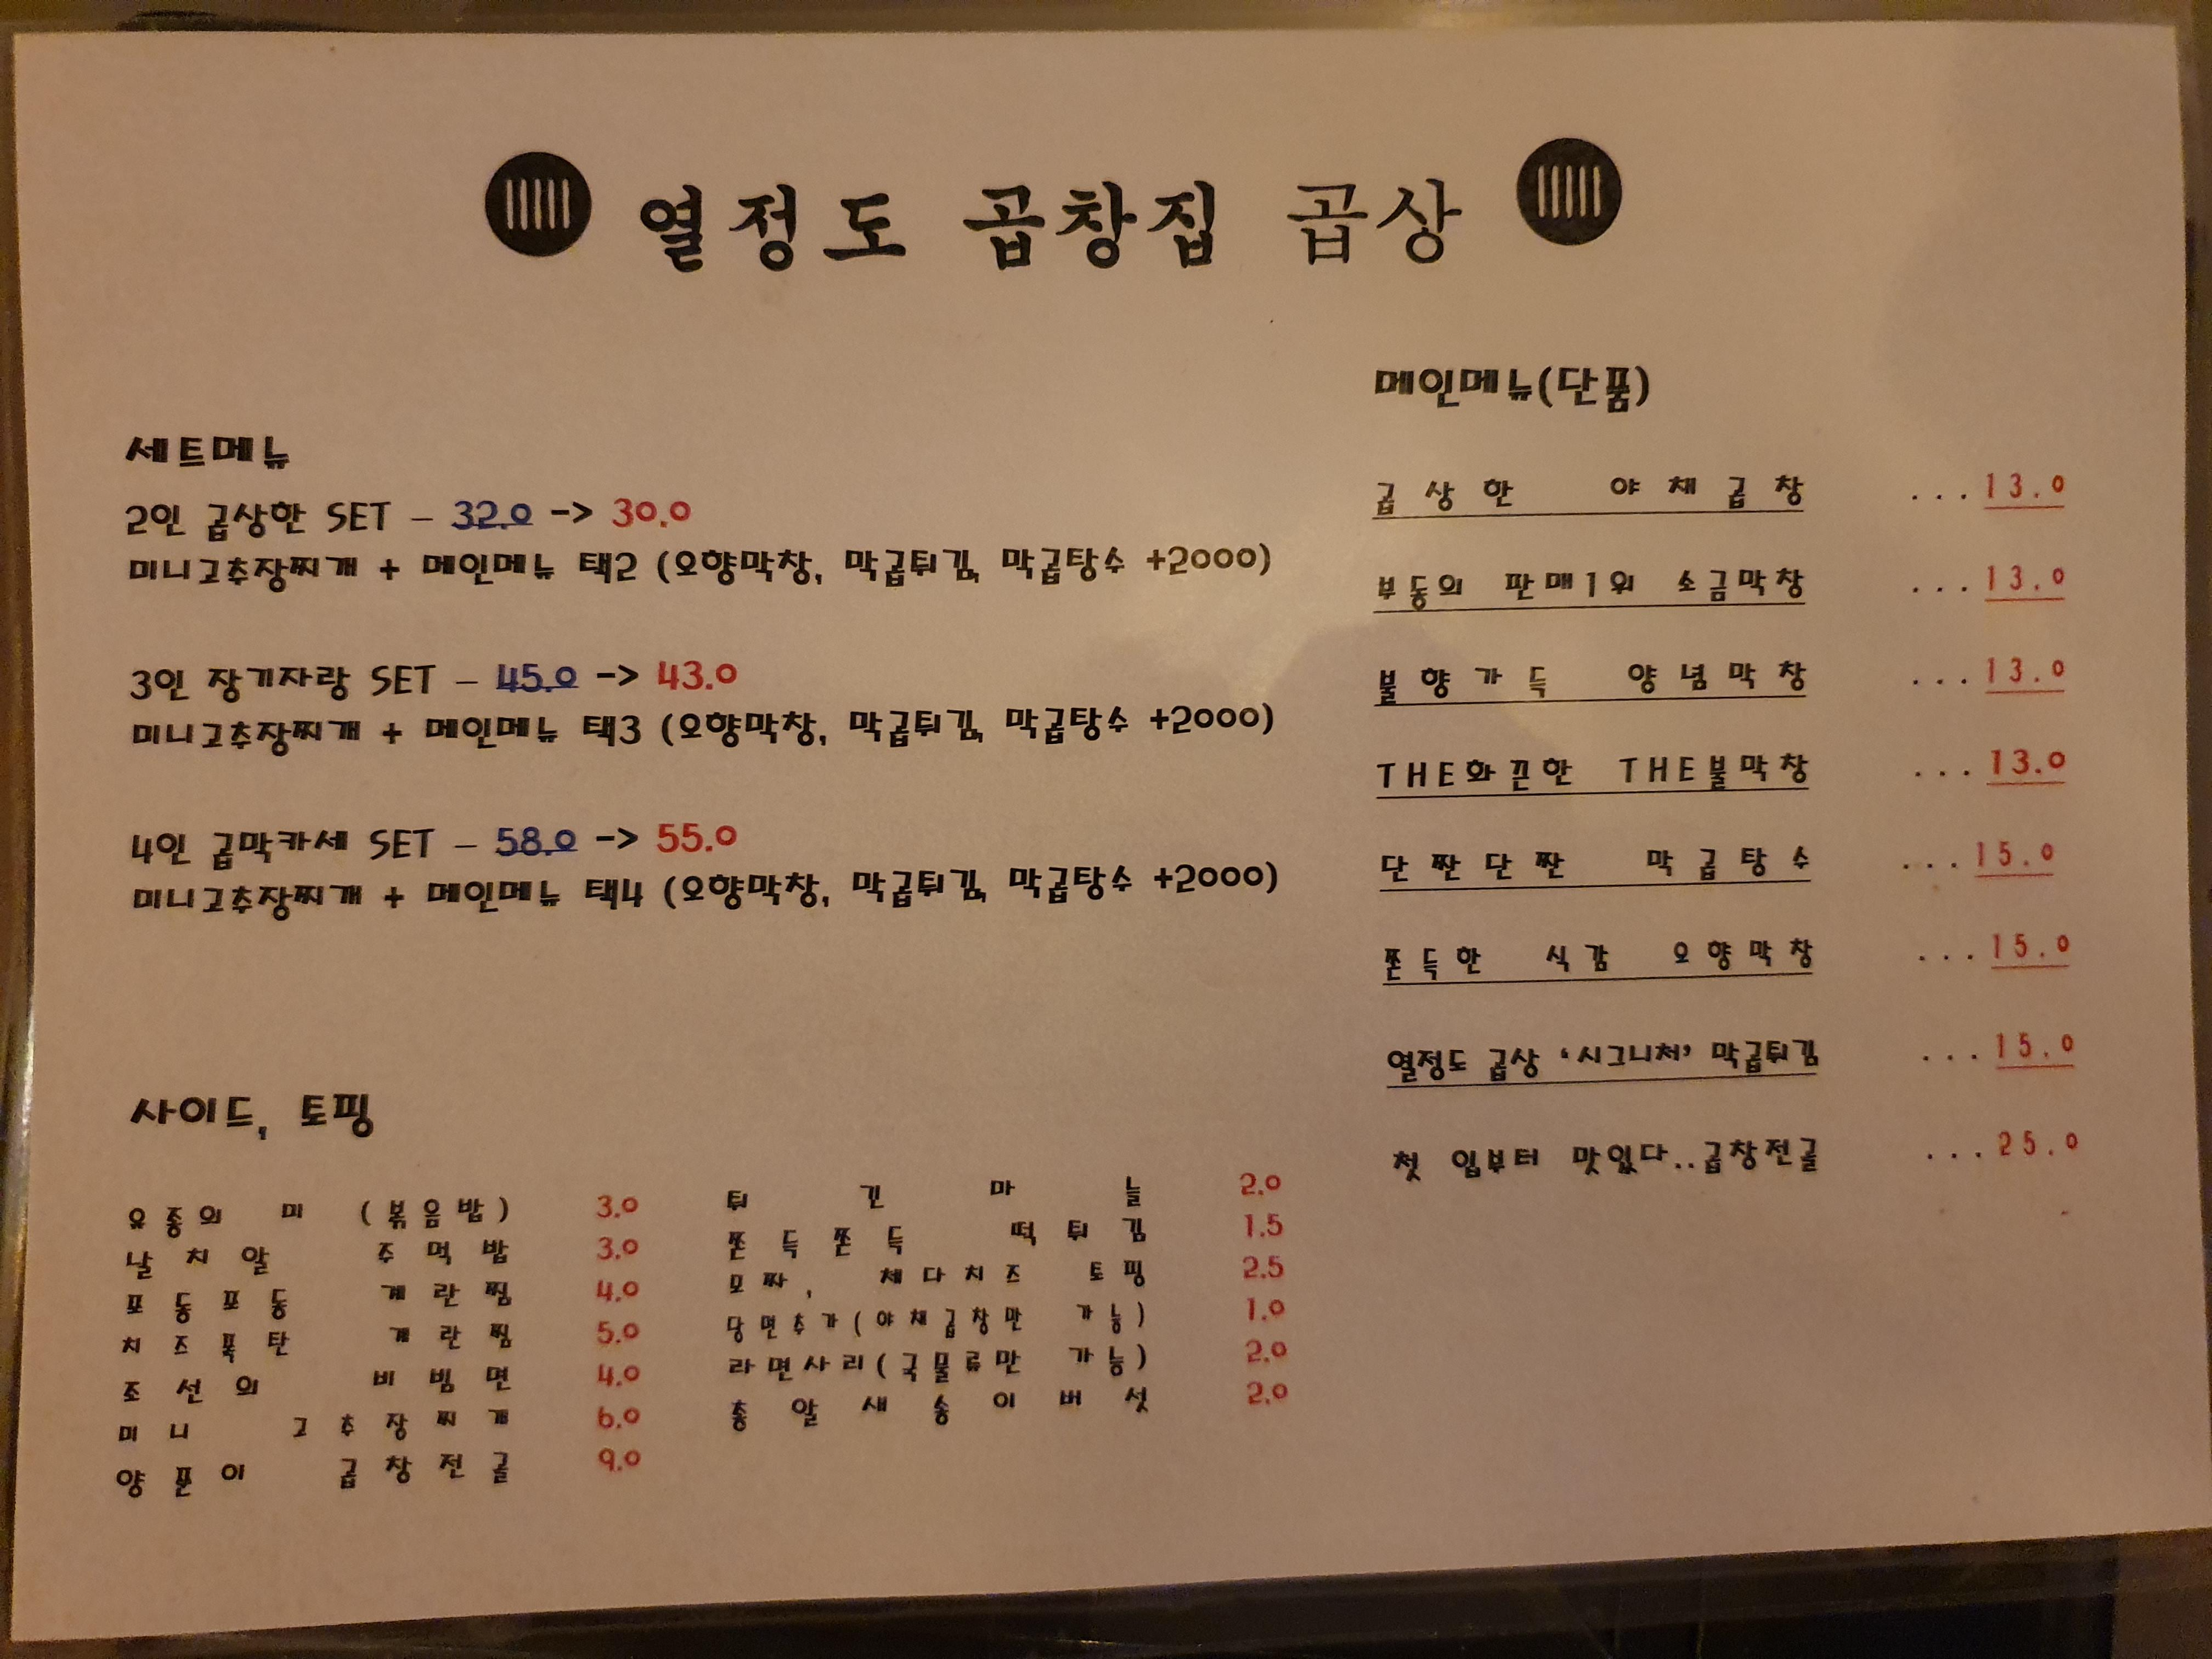 열정도 곱창집 곱상
세트메뉴
2인 곱상한 SET – 32.0 -> 30.0
미니고추장찌개 + 메인메뉴 택2 (오향막창, 막곱튀김, 막곱탕수 +2000)
3인 장기자랑 SET – 45.0 -> 43.0
미니고추장찌개 + 메인메뉴 택3 (오향막창, 막곱튀김, 막곱탕수 +2000)
4인 곱막카세 SET – 58.0 -> 55.0
미니고추장찌개 + 메인메뉴 택4 (오향막창, 막곱튀김, 막곱탕수 +2000)
사이드, 토핑
유종의 미 (볶음밥) 3.0
날치알 주먹밥 3.0
포동포동 계란찜 4.0
치즈폭탄 계란찜 5.0
조선의 비빔면 4.0
미니 고추장찌개 6.0
양푼이 곱창전골 9.0
튀긴마늘 2.0
쫀득쫀득 떡튀김 1.5
모짜, 체다치즈 토핑 2.5
당면추가(야채곱창만 가능) 1.0
라면사리(국물류만 가능) 2.0
총알새송이버섯 2.0
메인메뉴(단품)
곱상한 야채곱창 ...13.0
부동의 판매1위 소금막창 ...13.0
불향가득 양념막창 ...13.0
THE화끈한 THE불막창 ...13.0
단짠단짠 막곱탕수 ...15.0
쫀득한 식감 오향막창 ...15.0
열정도 곱상 ‘시그니처’ 막곱튀김 ...15.0
첫 입부터 맛있다..곱창전골 ...25.0